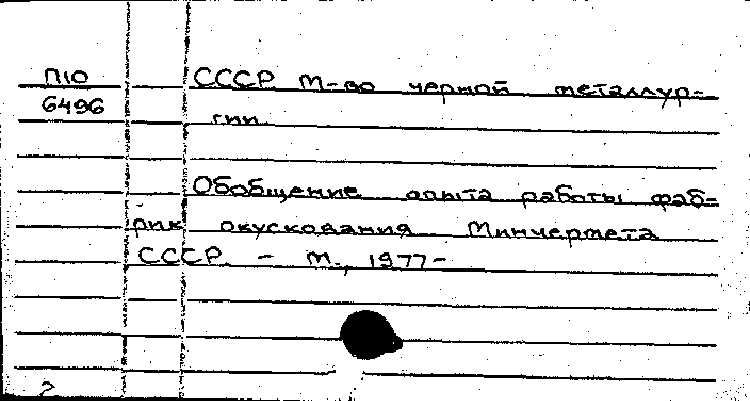 П10
6496
СССР. М-во черной металлур-
гии.
Обобщение опыта работы фаб-
рик окускования Минчермета
СССР. - М., 1977-
2